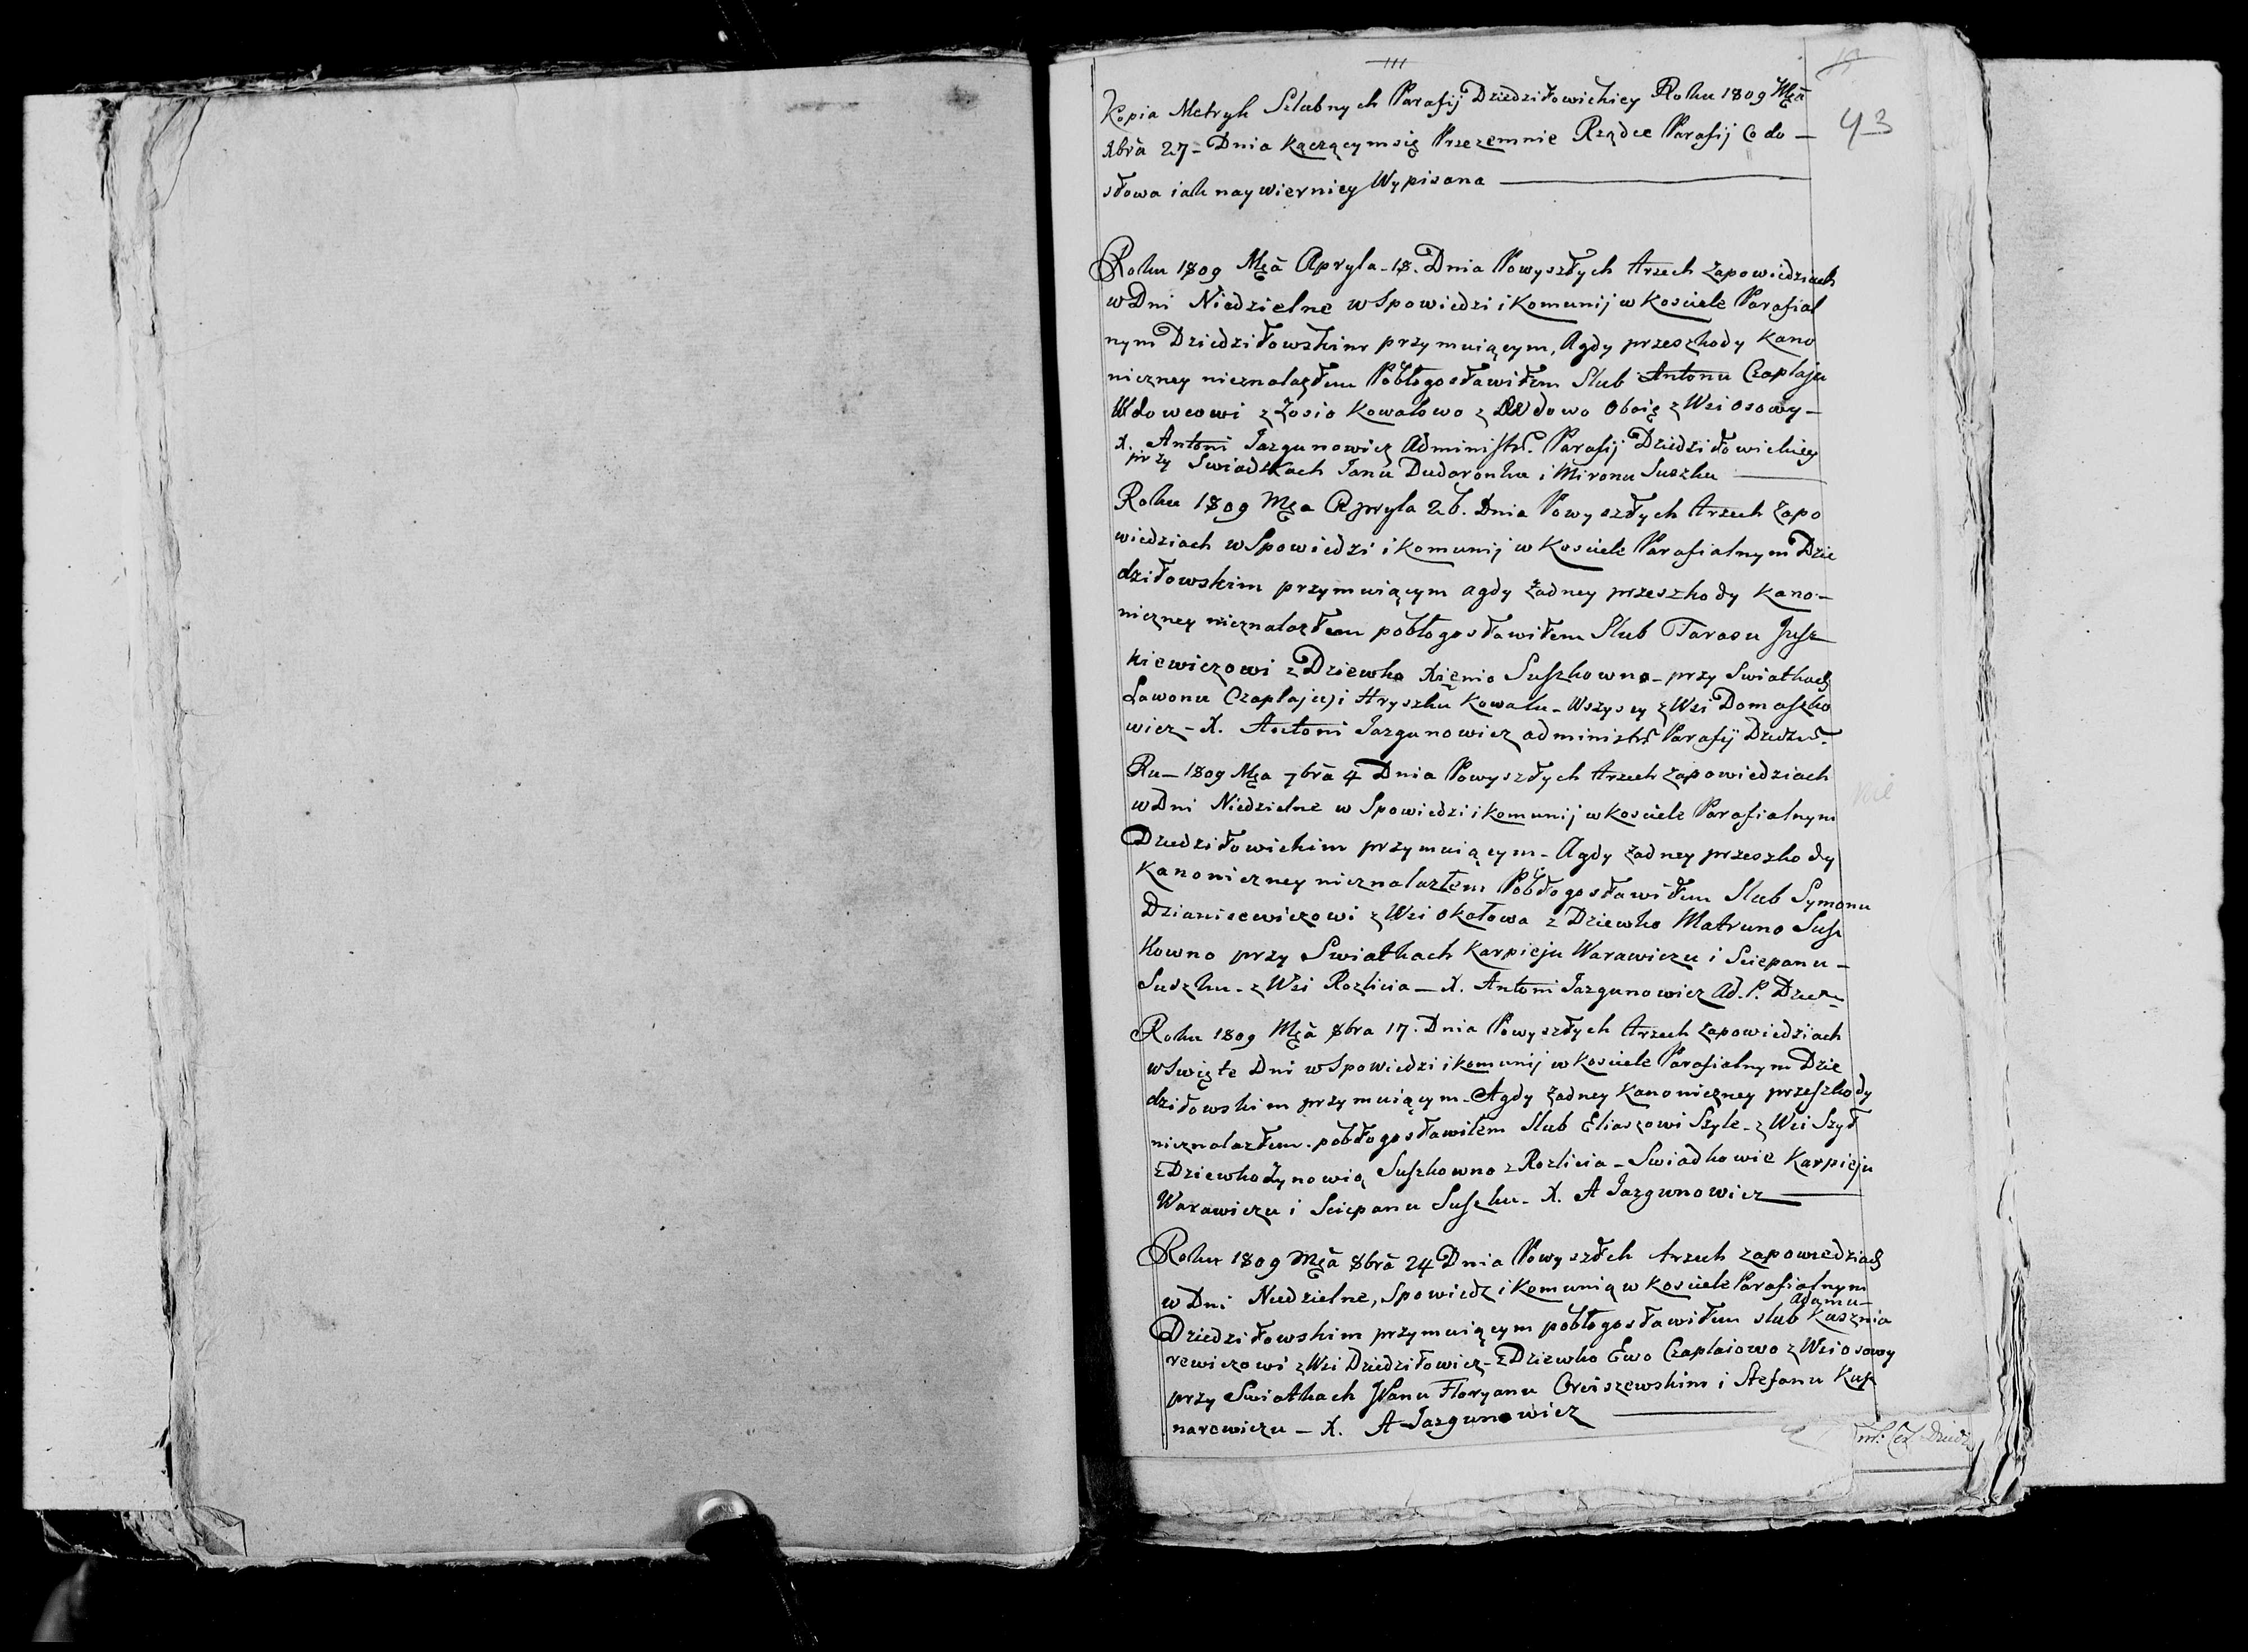 III
43
Kopia Metryk Slubnych Parafij Dziedziłowickiey Roku 1809 Mca
Xbra 27 - Dnia Kączącymsię Przezemnie Rządce Parafij Co do -
słowa iak naywierniey Wypisana
Roku 1809 Mca Apryla. 18. Dnia Powyszłych trzech zapowiedziach
w Dni Niedzielne w Spowiedzi i Komunij w Kosciele Parafial
nym Dziedziłowskim przymuiącym, Agdy przeszkody Kano
niczney nieznalazłem Pobłogosławiłem Slub Antonu Czaplaju
Wdowcowi z Zosio Kowalowo z Wdowo Oboię z Wsi Osowy -
X. Antoni Jazgunowicz Administr. Parafij Dziedziłowickiey
przy Swiadkach Janu Dudaronku i Mironu Suszku
Roku 1809 Mca Apryla 26. Dnia Powyszłych trzech Zapo
wiedziach w Spowiedzi i Komunij w Kosciele Parafialnym Dzie
dziłowskim przymuiącym agdy żadney przeszkody Kano -
niczney nieznalazłem pobłogosławiłem Slub Tarasu Jusz
kiewiczowi z Dziewko Xienio Suszkowno - przy Swiatkach
Lawonu Czaplaju i Hryszku Kowalu - Wszyscy z Wsi Domaszko
wicz - X. Antoni Jazgunowicz administr. Parafij Dziedził.
Ru - 1809 Mca 7bra 4 Dnia Powyszłych trzech zapowiedziach
w Dni Niedzielne w Spowiedzi i Komunij w Kosciele Parafialnym
Dziedziłowickim przymuiącym - Agdy żadney przeszkody
Kanoniczney nieznalazłem Pobłogosławiłem Slub Symonu
Dzianisewiczowi z Wsi Okołowa z Dziewko Matruno Susz
kowno przy Swiatkach Karpieju Warawiczu i Sciepanu -
Suszku - z Wsi Rozlicia - X. Antoni Jazgunowicz Ad. P.
Roku 1809 Mca 8bra 17. Dnia Powyszłych trzech zapowiedziach
w Swięte Dni w Spowiedzi i Komunij w Kosciele Parafialnym Dzie
dziłowskim przymuiącym - Agdy żadney Kanoniczney przeszkody
nieznalazłem. pobłogosławilem Slub Eliaszowi Szyle - z Wsi Szył
z Dziewko Zynowią Suszkowno z Rozlicia - Swiadkowie Karpieju
Warawiczu i Sciepanu Suszku - X. A Jazgunowicz
Roku 1809 Mca 8bra 24 Dnia Powyszłch trzech zapowiedziach
w Dni Niedzielne, Spowiedz i Komunią w Kosciele Parafialnym
Adamu -
Dziedziłowskim przymuiącym pobłogosławiłem slub Kusznia
rewiczowi z Wsi Dziedziłowicz - z Dziewko Ewo Czaplaiowo z Wsi Osowy
przy Swiatkach JPanu Floryanu Orciszewskim i Stefanu Kusz
narowiczu - X. A Jazgunowicz